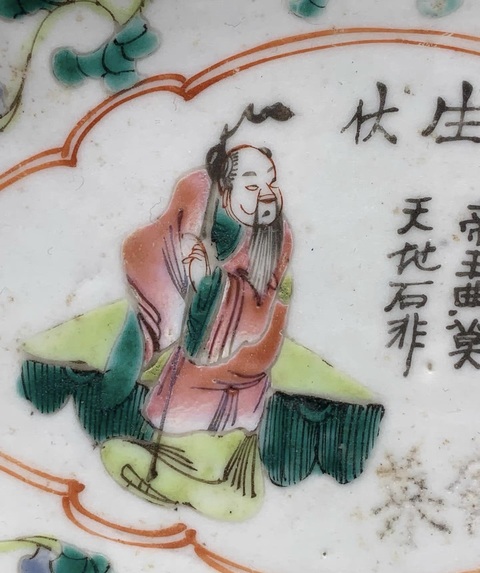 伏生
帝王典莫
天地石非